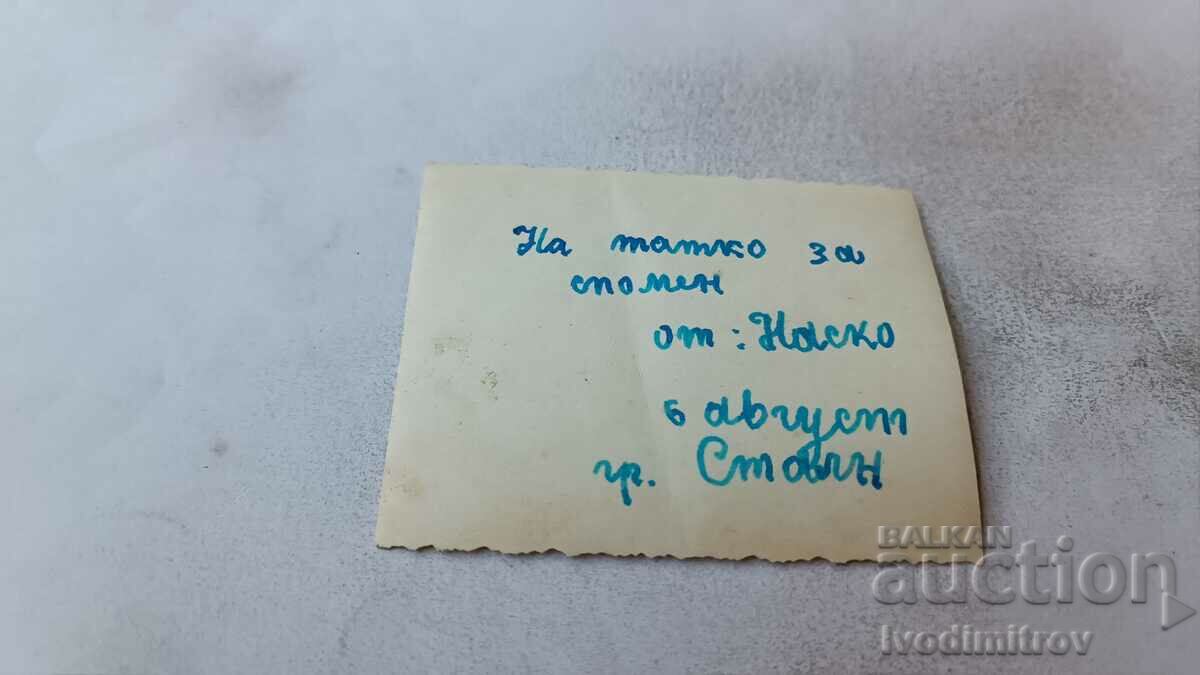 На татко за
спомен
от: Наско
6 август
гр. Сталин
BALKAN
auction
Ivodimitrov